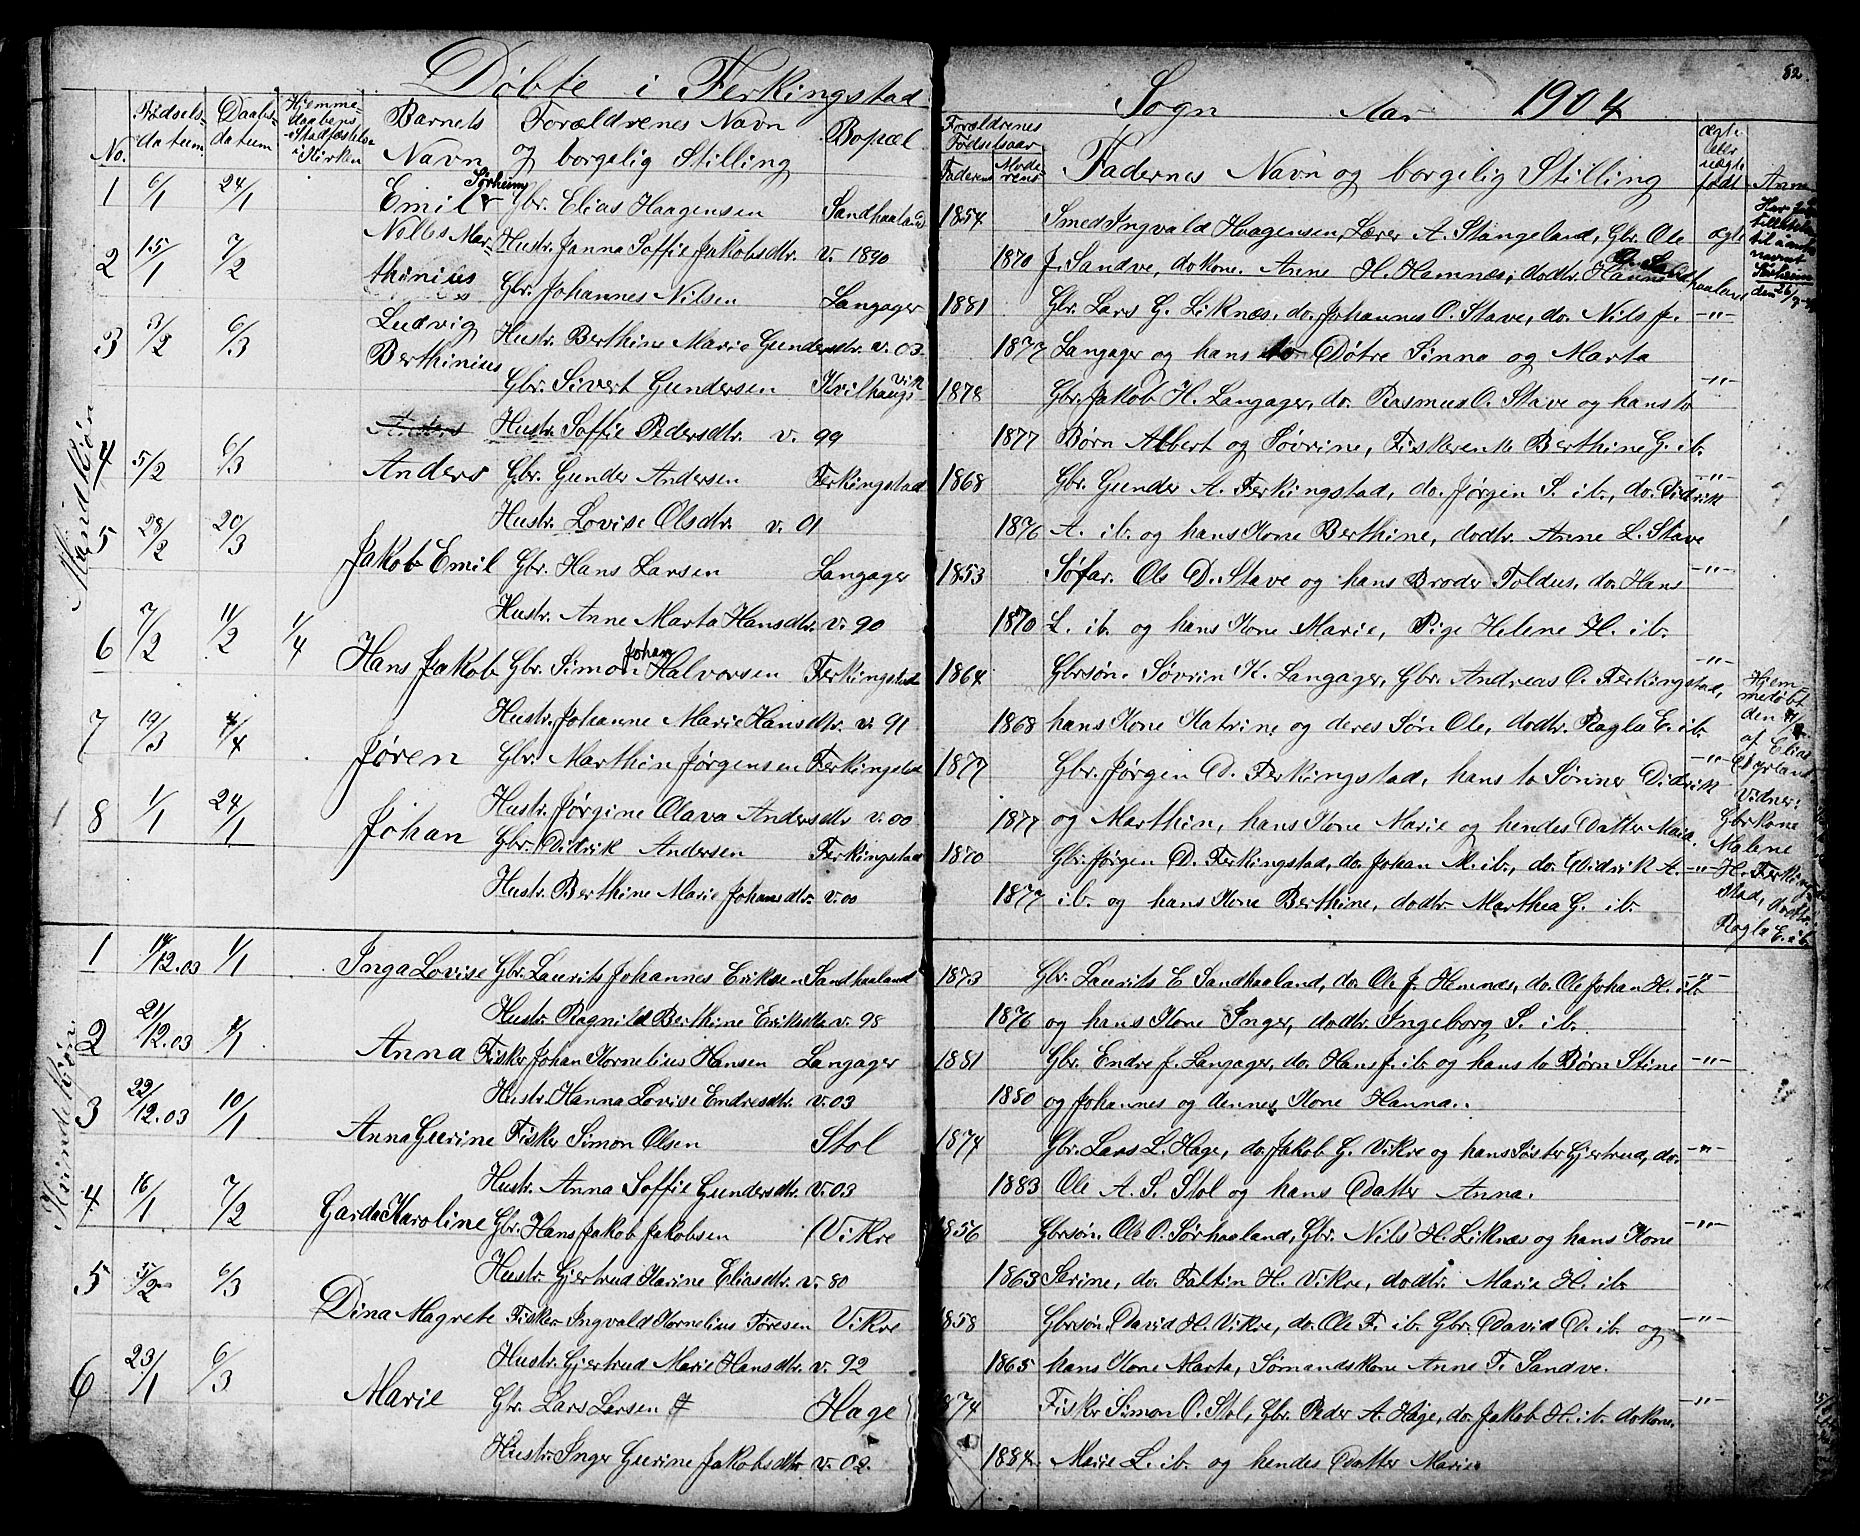 Døbte i Ferkingstad Sogn Aar 1904
82.
No. Fødselsdatum Daabsdatum Hjemmedaabens Stadfæstelse i Kirken Barnets Navn Forældrenes Navn og borgelig Stilling Bopæl Forældrenes Fødselsaar Faderens Moderens Fadernes Navn og borgelig Stilling ægte eller uægte født Anm
Mandkjøn
1 6/1 24/1 Emil Sørheim Gbr. Elias Haagensen Sandhaaland 1854 Smed Ingvald Haagensen, Lærer A. Stangeland, Gbr. Ole ægte
Hustr. Janna Soffie Jakobsdtr. v. 1890 1870 J. Sandve, do kone. Anne H. Hemnæs, dodtr. Hanna
2 15/1 7/2 Nolles Marthinius Gbr. Johannes Nilsen Langager 1881 Gbr. Lars G. Liknæs, do. Johannes O. Stave, do. Nils J. -"-
Hustr. Berthine Marie Gundersdtr. v. 03. 1877 Langager og hans to Døtre Sinna og Marta
3 3/2 6/3 Ludvig Berthinius Gbr. Sivert Gundersen Kvilhaugsvik 1878 Gbr. Jakob H. Langager, do. Rasmus O. Stave og hans to -"-
Hustr. Soffie Pedersdtr. v. 99 1877 Børn Albert og Søvrine, Fiskerenke Berthine G. ib.
4 5/2 6/3 Anders Gbr. Gunder Andersen Ferkingstad 1868 Gbr. Gunder A. Ferkingstad, do. Jørgen S. ib., do. Didrik -"-
Hustr. Lovise Olsdtr. v. 01 1876 A. ib. og hans Kone Berthine, dodtr. Anne L. Stave
5 28/2 20/3 Jakob Emil Gbr. Hans Larsen Langager 1853 Søfar. Ole D. Stave og hans Broder Toldus, do. Hans -"-
Hustr. Anne Marta Hansdtr. v. 90 1870 L. ib. og hans Kone Marie, Pige Helene H. ib.
6 7/2 11/2 1/4 Hans Jakob Gbr. Simon Johan Halvorsen Ferkingstad 1864 Gbrsøn. Søvrin K. Langager, Gbr. Andreas O. Ferkingstad, -"-
Hustr. Johanne Marie Hansdtr. v. 91 1868 hans Kone Katrine og deres Søn Ole, dodtr. Ragla E. ib.
7 19/3 4/4 Jøren Gbr. Marthin Jørgensen Ferkingstad 1877 Gbr. Jørgen D. Ferkingstad, hans to Sønner Didrik -"-
Hustr. Jørgine Olava Andersdtr v. 00 1877 og Marthin, hans Kone Marie og hendes Datter Maria.
8 1/1 24/1 Johan Gbr. Didrik Andersen Ferkingstad 1870 Gbr. Jørgen D. Ferkingstad, do. Johan M. ib., do. Didrik A. -"-
Hustr. Berthine Marie Johansdtr. v. 00 1877 ib. og hans Kone Berthine, dodtr. Marthea G. ib.
til at antage navnet Sørheim
Hjemmedøbt den af Elias Vidner: Gbrkone Malene H. Ferkingstad, dodtr. Ragla E. ib
Kvindekjøn.
1 12.03 1/1 Inga Lovise Gbr. Laurits Johannes Eriksen Sandhaaland 1873 Gbr. Laurits E Sandhaaland, do. Ole J. Hemnæs, do. Ole Johan H. ib. -"-
Hustr. Ragnild Berthine Eriksdtr. v. 98 1876 og hans Kone Inger, dodtr. Ingeborg S. ib.
2 21/12.03 1/1 Anna Fisker Johan Kornelius Hansen Langager 1881 Gbr. Endre J. Langager, do. Hans J. ib. og hans to Børn Stine -"-
Hustr. Hanna Lovise Endresdtr. v. 03 1880 og Johannes og dennes Kone Hanna.
3 22/12.03 10/1 Anna Gurine Fisker Simon Olsen Stol 1874 Gbr. Lars L. Hage, do. Jakob G. Vikre og hans Søster Gjertrud, do. -"-
Hustr. Anna Soffie Gundersdtr. v. 03 1883 Ole A. S. Stol og hans Datter Anna.
4 16/1 7/2 Garda Karoline Gbr. Hans Jakob Jakobsen Vikre 1856 Gbrsøn. Ole O. Sørhaaland, Gbr. Nils H. Liknæs og hans Kone -"-
Hustr. Gjertrud Karine Eliasdtr. v. 80 1863 Serine, do. Faltin H. Vikre, dodtr. Marie H. ib.
5 5/2 6/3 Dina Magrete Fisker Ingvald Kornelius Toresen Vikre 1858 Gbrsøn. David H. Vikre, do. Ole F. ib. Gbr. David D. ib. og -"-
Hustr. Gjertrud Marie Hansdtr. v. 92 1865 hans Kone Marta, Sømandskone Anne T. Sandve.
6 23/1 6/3 Marie Gbr. Lars Larsen Hage 1874 Fisker Simon O. Stol, Gbr. Peder A. Hage, do. Jakob H. ib. do kone. -"-
Hustr. Inger Gurine Jakobsdtr v. 02. 1884. Marie L. ib. og hendes Datter Marie